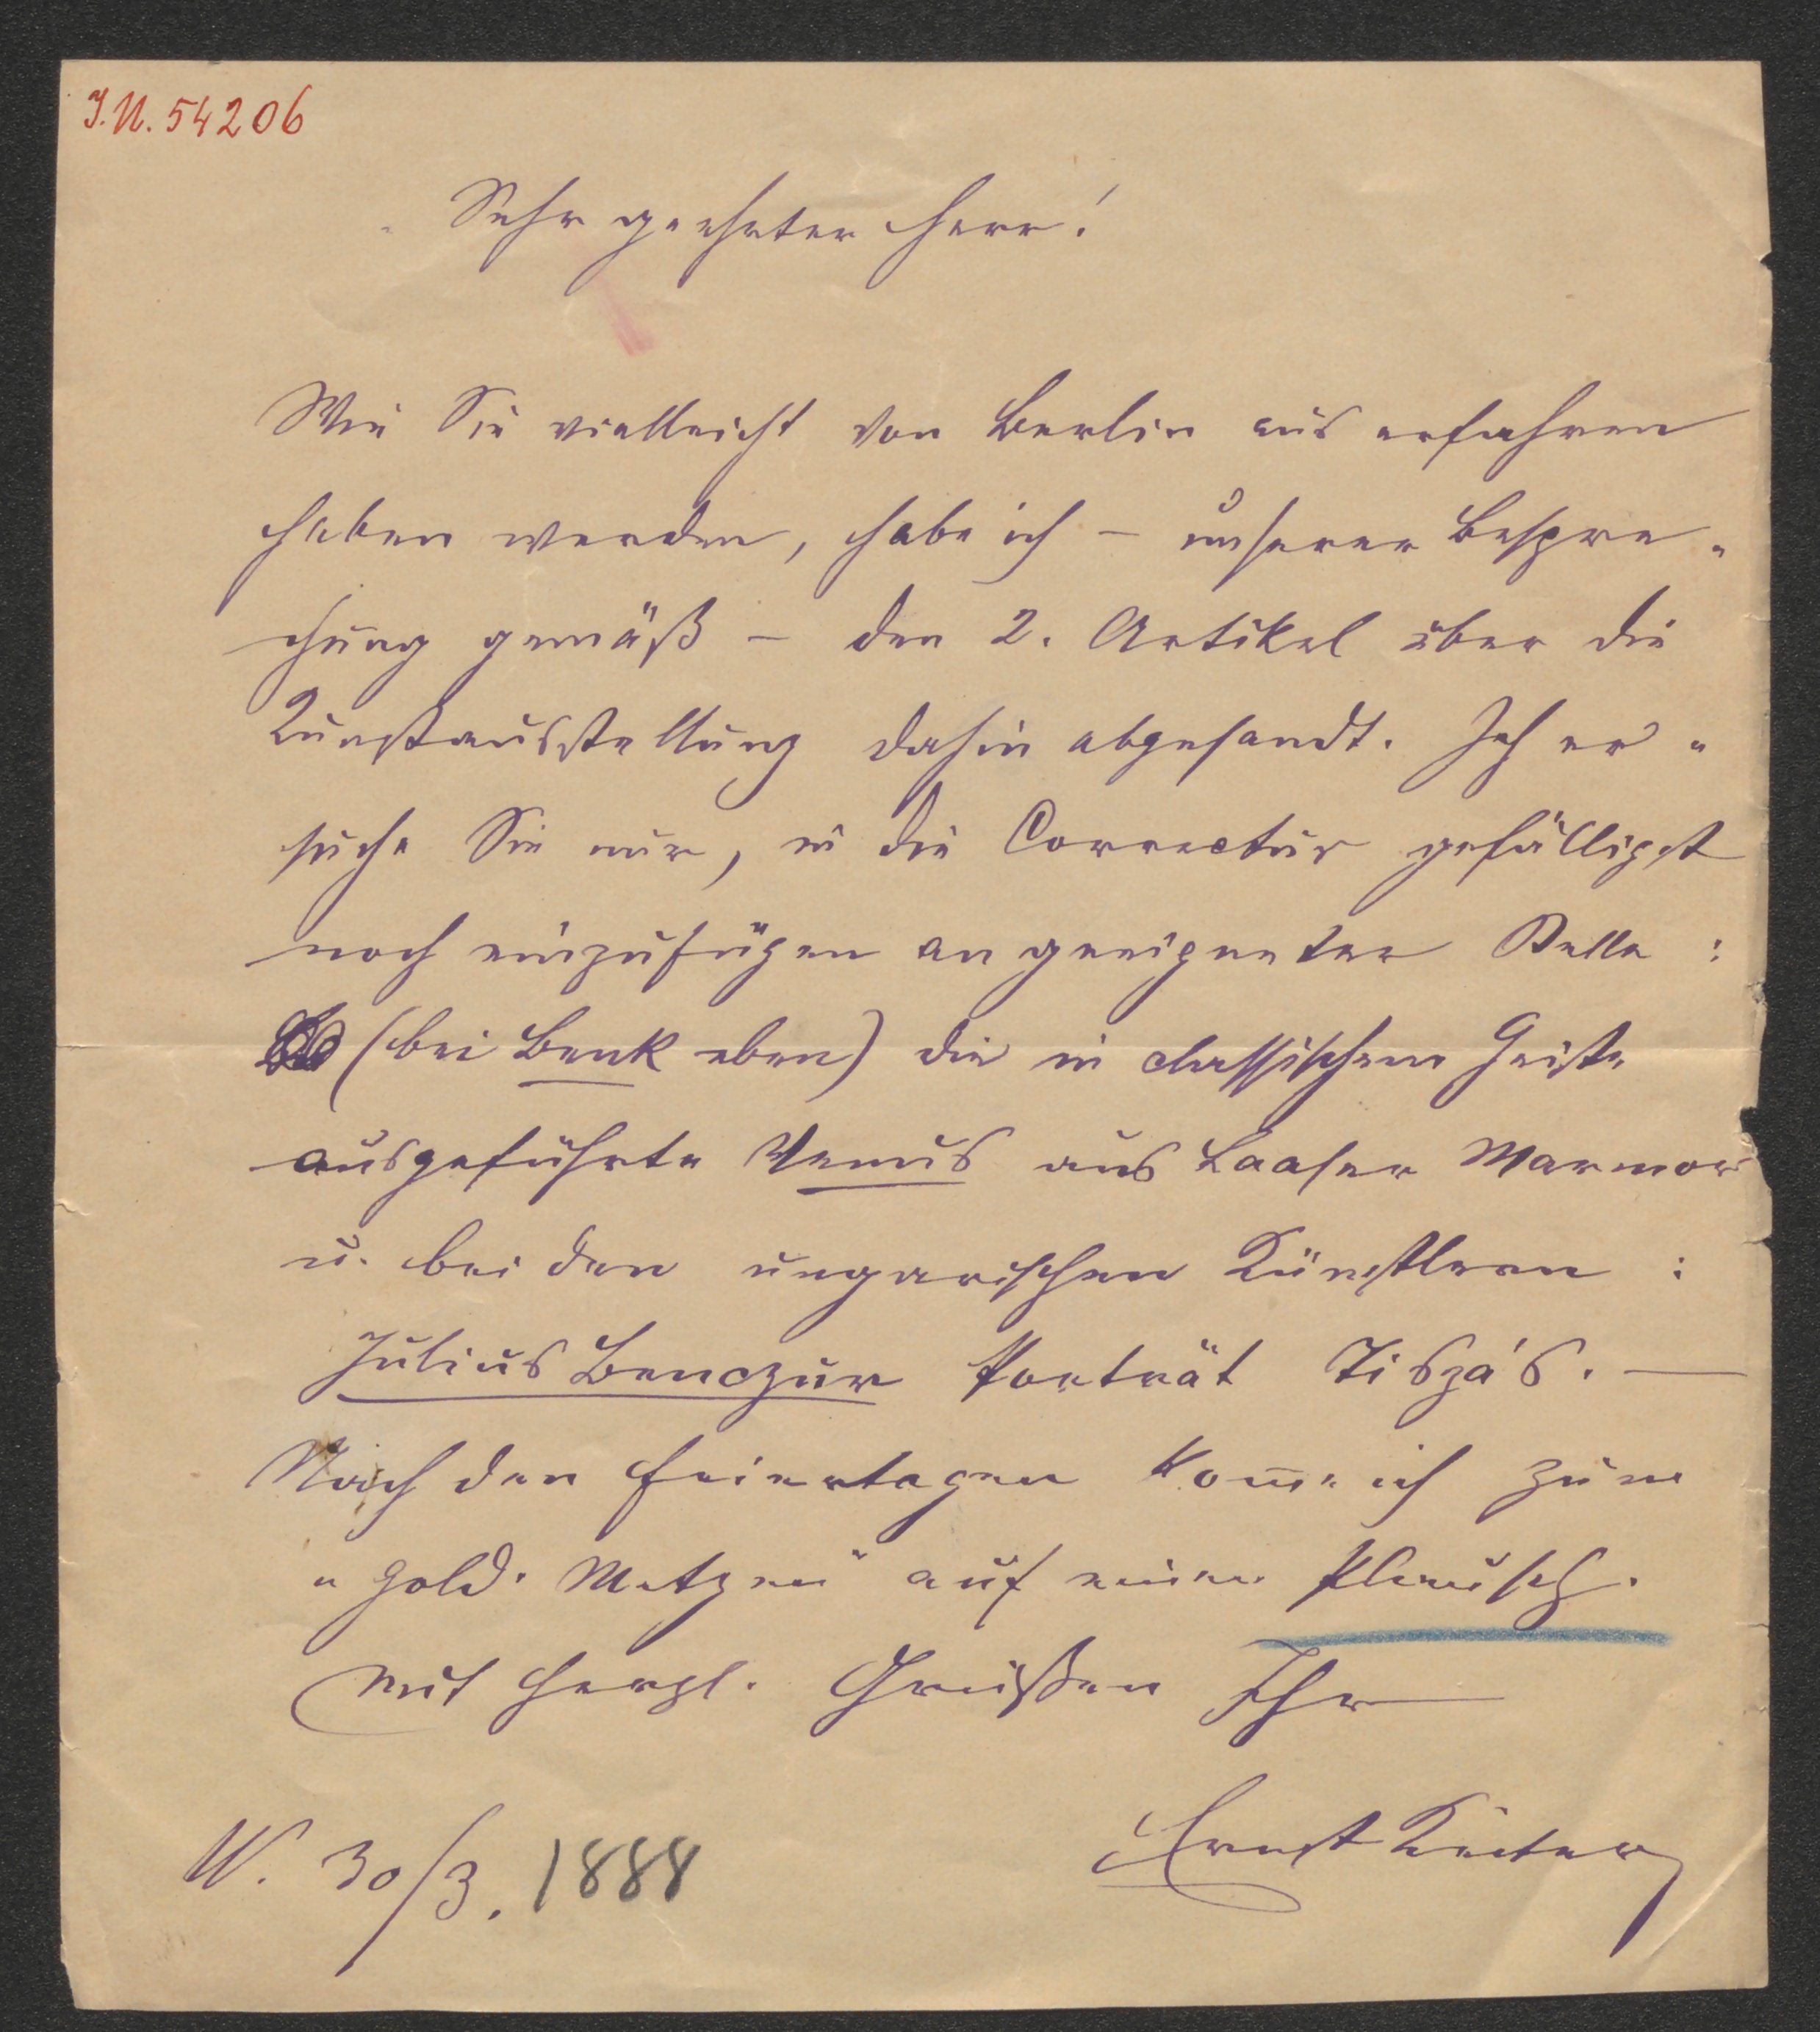 I.N. 54206
Sehr geehrter Herr!
Wie Sie vielleicht von Berlin aus erfahren
haben werden, habe ich – unserer Bespre„
chung gemäß – den 2. Artikel über die
Kunstausstellung dahin abgesandt. Ich er„
suche Sie nur, in die Correctur gefälligst
noch einzufügen an geeigneter Stelle:
(bei Benk eben) die in classischem Geiste
ausgeführte Venus aus Laaser Marmor
u. bei den ungarischen Künstlern:
Julius Benczur Porträt Tisza's. —
Nach den Feiertagen kom̅e ich zum
„Gold. Metzen“ auf einen Plausch.
Mit herzl. Grüßen Ihr
Ernst Keiter
W. 30/3. 1888